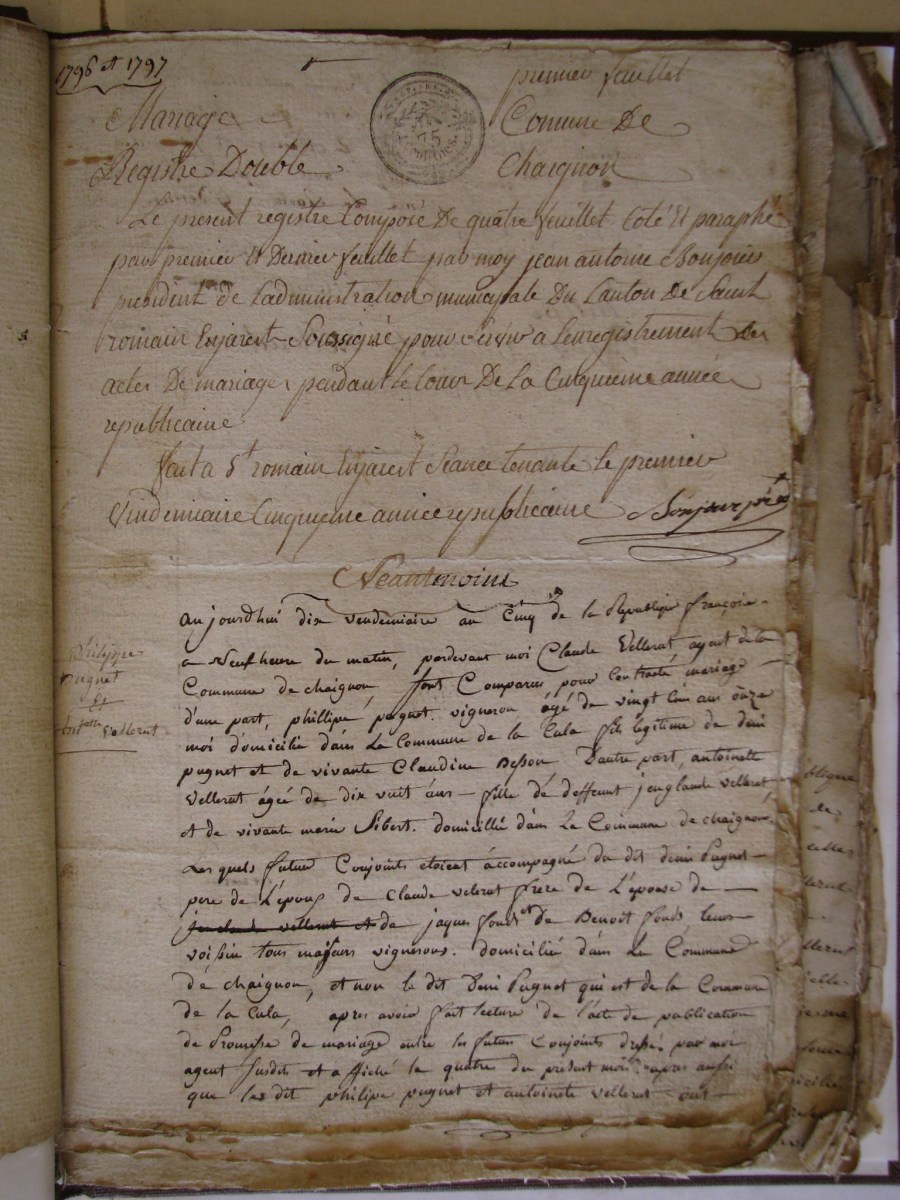 1796 et 1797
premier feuillet
Mariage
Commune De
Registre Double
Chaignon
75
Le present registre Composé De quatre feuillet Coté Et paraphé
par premier Et Dernier feuillet par moy jean antoine Bonjour
president de L'administration municipale Du Canton de Saint
romain Enjarest Soussigné pour servir a Lenregistrement des
actes De mariages pendant Le Cour De La Cinquieme année
republicaine
fait a St romain Enjarest Seance tenante le premier
Vindemiaire Cinquyeme année republicaine Bonjour
Neantmoins
aujourdhui dix vendemiaire an Cinq de la Republique françoise
a Neuf heure du matin, pardevant moi Claude Vellerut, agent de la
Commune de chaignon, sont Comparus pour Contracté mariage
d'une part, phillipe pugnet. vigneron âgé de vingt Cin ans onze
moi domicilié dans Le Commune de la Cula fils légitime de deni
pugnet et de vivante Claudine Besson D'autre part, antoinette
Vellerut âgée de dix vuit ans - fille de deffeunt jenglaude velleret
et de vivante marie Sibert. domicillié dans Le Commune de chaignon.
Philippe
Pugnet
Et
Antoitte Vellerut
Les quels futur Conjoints etoient accompagné du dit deni Pugnet
pere de L'epoux de Claude velerut frere de L'épouse de
de jaques fond et de Benoît fonds leurs
voisin tous majeurs vignerons. domicilié dans Le Commune
de chaignon, et non le dit Deni Pugnet qui est de la Commune
de la Cula, apres avoir fait lecture de l'acte de publication
de Promesse de mariage entre les futurs Conjoints dressé par moi
agent susdit et affiché le quatre du present mois apres aussi
que les dit philipe pugnet et antoinete vellerut ont